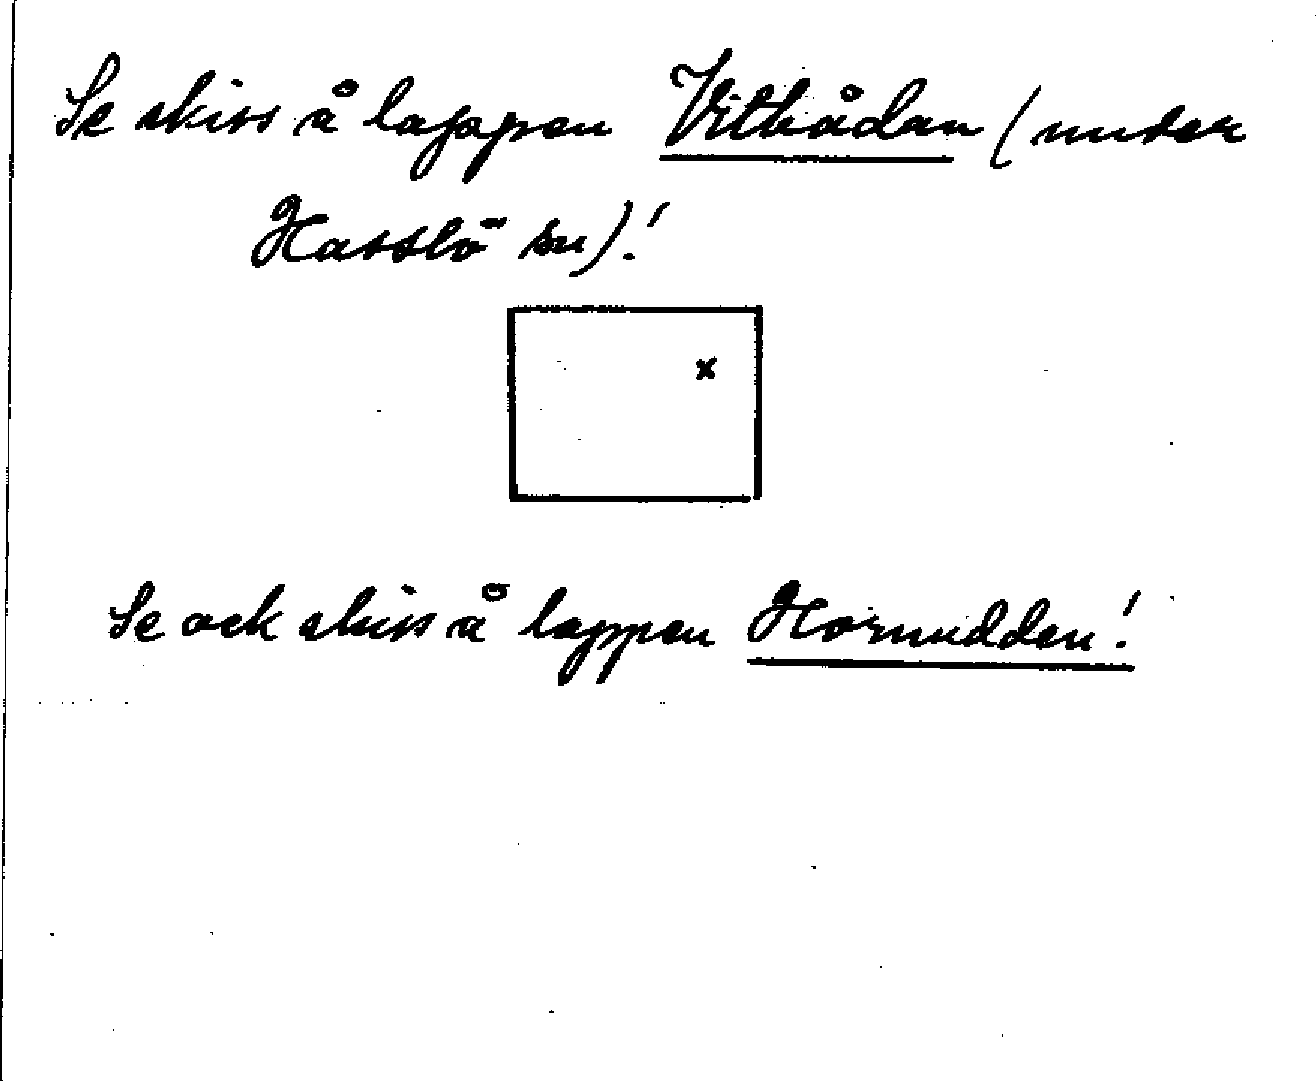 Se skiss å lappen Vitkådan (under
Hasslö sn)!
x
Se ock skiss å lappen Hornudden!